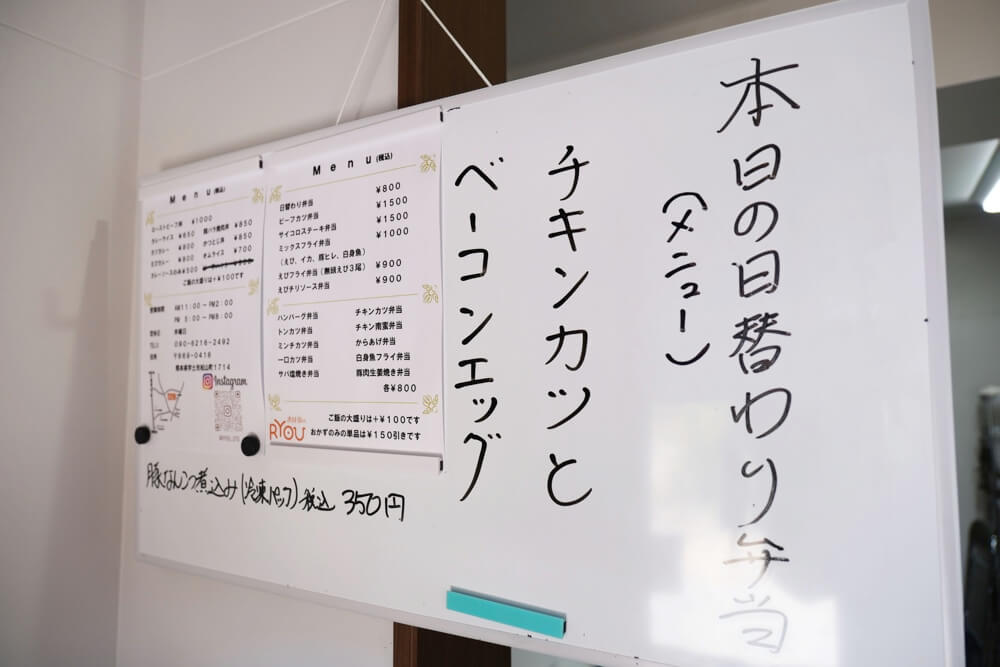 本日の日替わり弁当
(メニュー)
チキンカツと
ベーコンエッグ
Menu(税込)
日替わり弁当 ¥800
ビーフカツ弁当 ¥1500
サイコロステーキ弁当 ¥1500
ミックスフライ弁当 ¥1000
(えび、イカ、豚ヒレ、白身魚)
えびフライ弁当(無頭えび3尾) ¥900
えびチリソース弁当 ¥900
ハンバーグ弁当 チキンカツ弁当
トンカツ弁当 チキン南蛮弁当
ミンチカツ弁当 からあげ弁当
一口カツ弁当 白身魚フライ弁当
サバ塩焼き弁当 豚肉生姜焼き弁当
各¥800
RYOU
ご飯の大盛りは+¥100です
おかずのみの単品は¥150引きです
Menu(税込)
ローストビーフ丼 ¥1000
カレーライス ¥650 豚バラ焼肉丼 ¥850
¥800 かつとじ丼 ¥850
¥800 オムライス ¥700
カレーソースのみ ¥500
ご飯の大盛りは+¥100です
営業時間 AM11:00~PM2:00
PM 5:00~PM8:00
定休日 木曜日
TEL 090-6216-2492
住所 〒869-0418
熊本県宇土市松山町1714
Instagram
豚なんこつ煮込み(冷凍パック)税込 350円